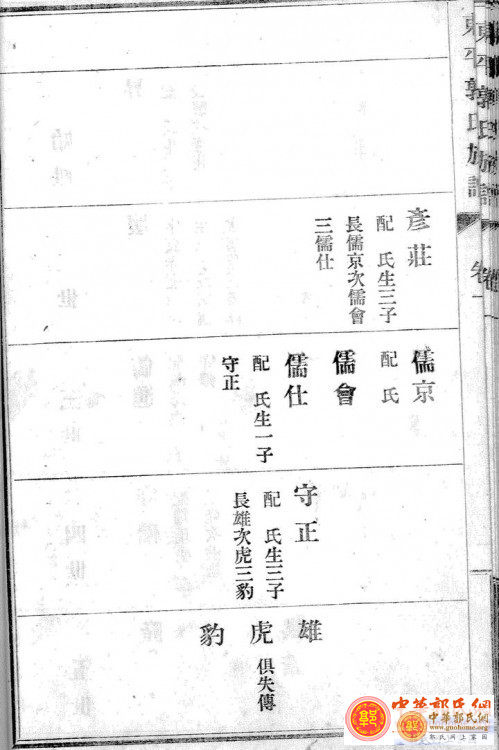 東平郭氏族譜
卷一
彥莊
配 氏生三子
長儒京次儒會
三儒仕
儒京
配 氏
儒會
儒仕
配 氏生一子
守正
守正
配 氏生三子
長雄次虎三豹
雄
虎
俱失傳
豹
中华郭氏网
www.guohome.org
郭氏网上家园